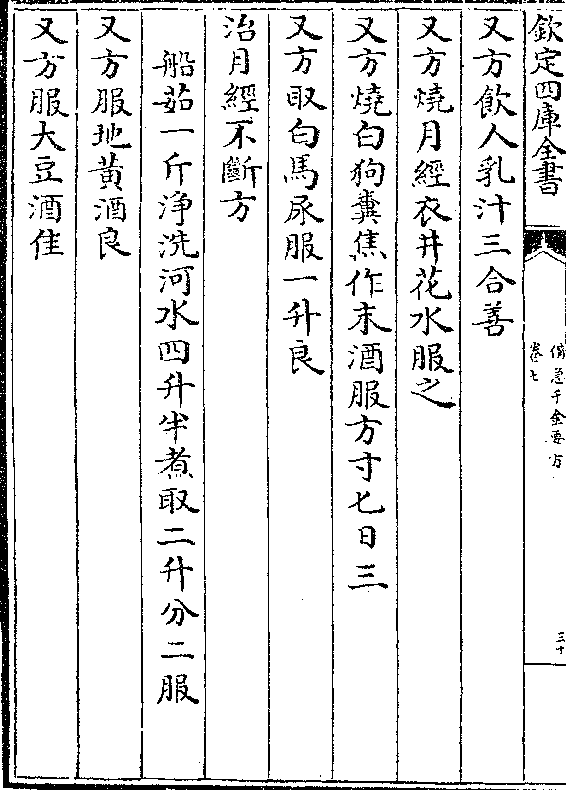 欽定四庫全書
備急千金要方
卷七
三十
又方飲人乳汁三合善
又方燒月經衣井花水服之
又方燒白狗糞焦作末酒服方寸匕日三
又方取白馬尿服一升良
治月經不斷方
船茹一斤淨洗河水四升半煮取二升分二服
又方服地黃酒良
又方服大豆酒佳